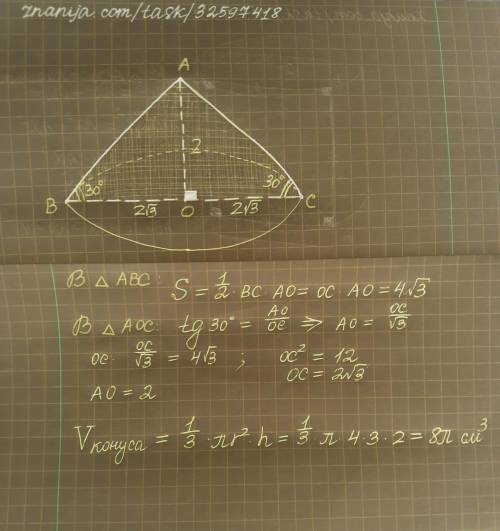 znanija.com/task/32597418
A
2
30° 30°
B 2√3 O 2√3 C
В △ ABC: S = 1/2 · BC AO = OC · AO = 4√3
В △ AOC: tg 30° = AO/OC ⇒ AO = OC/√3
OC · OC/√3 = 4√3 ; OC² = 12
OC = 2√3
AO = 2
Vконуса = 1/3 · πr² h = 1/3 π · 4 · 3 · 2 = 8π см³